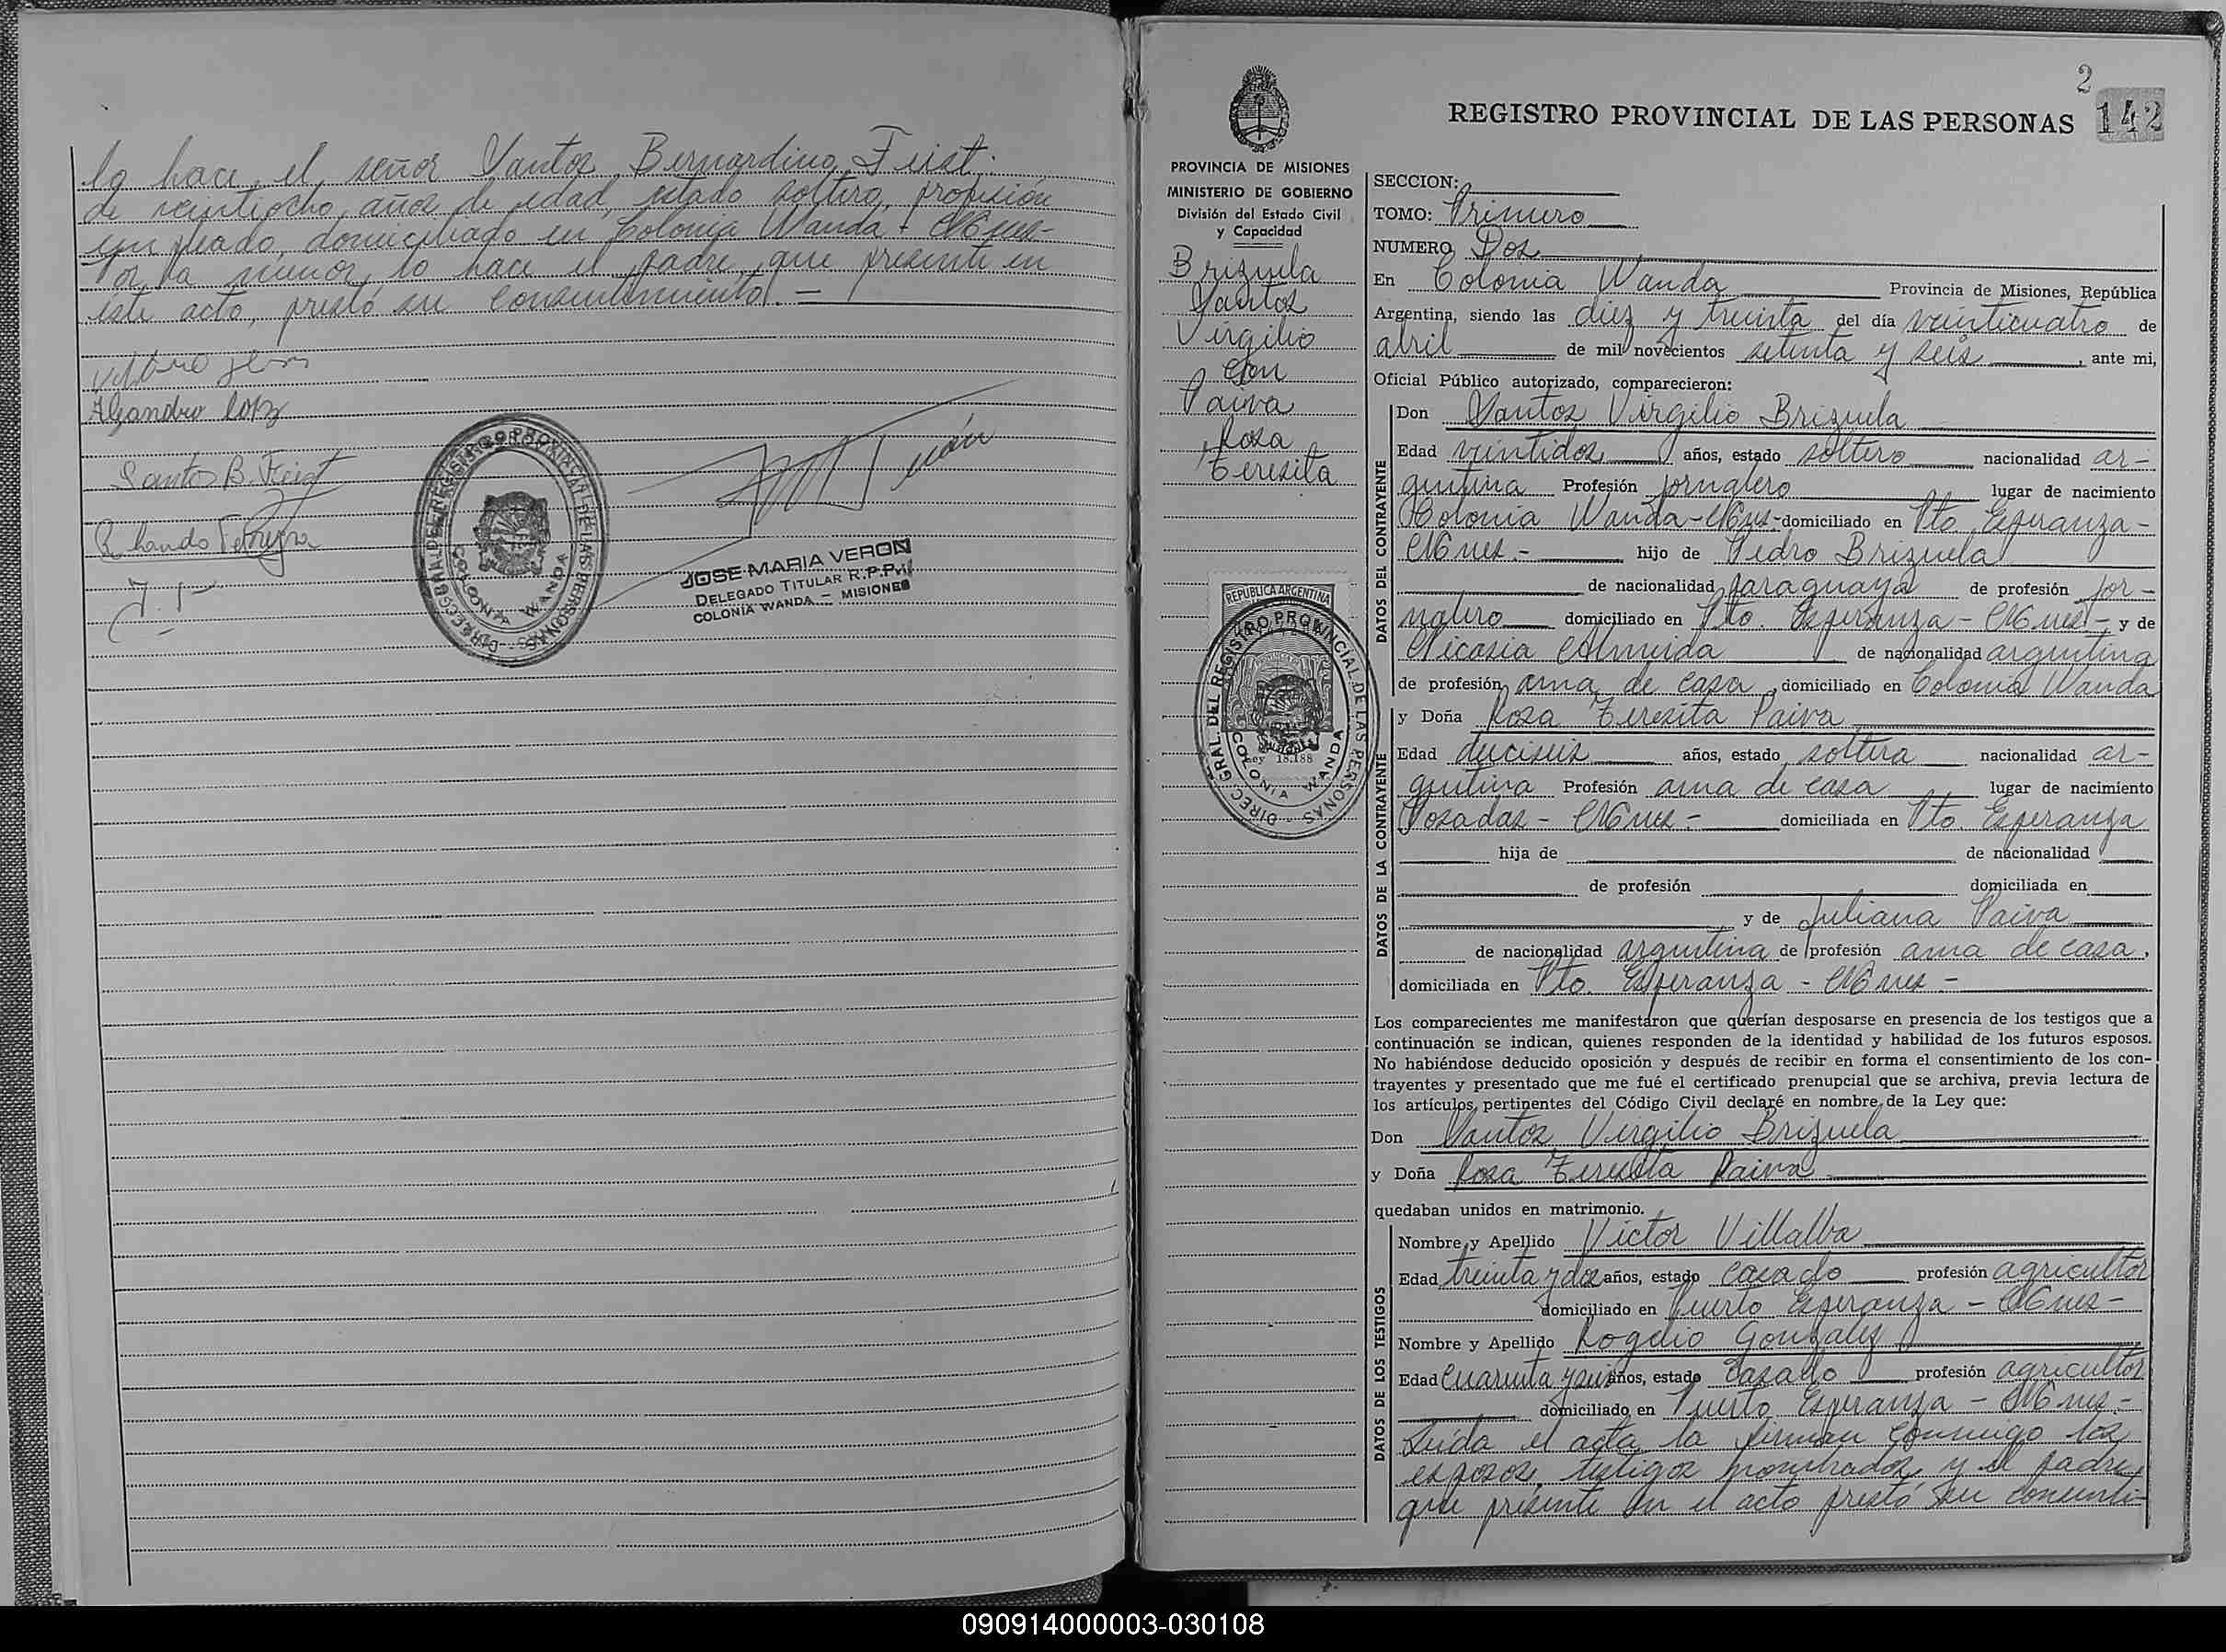 lo hace el señor Santos Bernardino Feist.
de veintiocho años de edad, estado soltero, profesión
empleado, domiciliado en Colonia Wanda - Mnes-
Por la menor, lo hace el padre, que presente en
éste acto, prestó su consentimiento. -
Alejandro
Santos B. Feist
JOSE MARIA VERON
DELEGADO TITULAR R.P.P.
COLONIA WANDA - MISIONES
DIREC. GRAL. DEL REGISTRO PROVINCIAL DE LAS PERSONAS
COLONIA WANDA
2
REGISTRO PROVINCIAL DE LAS PERSONAS 142
PROVINCIA DE MISIONES
MINISTERIO DE GOBIERNO
División del Estado Civil
y Capacidad
Brizuela
Santos
Virgilio
con
Paiva
Rosa
Teresita
REPUBLICA ARGENTINA
Ley 18.188
DIREC. GRAL. DEL REGISTRO PROVINCIAL DE LAS PERSONAS
COLONIA WANDA
SECCION:
TOMO: Primero
NUMERO Dos
En Colonia Wanda Provincia de Misiones, República
Argentina, siendo las diez y treinta del día veinticuatro de
abril de mil novecientos setenta y seis, ante mi,
Oficial Público autorizado, comparecieron:
DATOS DEL CONTRAYENTE
Don Santos Virgilio Brizuela
Edad veintidos años, estado soltero nacionalidad ar-
gentina Profesión jornalero lugar de nacimiento
Colonia Wanda-Mnes- domiciliado en Pto. Esperanza-
Mnes.- hijo de Pedro Brizuela
de nacionalidad paraguaya de profesión jor-
nalero domiciliado en Pto. Esperanza - Mnes- y de
Nicasia Almeida de nacionalidad argentina
de profesión ama de casa, domiciliado en Colonia Wanda
DATOS DE LA CONTRAYENTE
y Doña Rosa Teresita Paiva
Edad dieciseis años, estado soltera nacionalidad ar-
gentina Profesión ama de casa lugar de nacimiento
Posadas - Mnes.- domiciliada en Pto. Esperanza
hija de de nacionalidad
de profesión domiciliada en
y de Juliana Paiva
de nacionalidad argentina de profesión ama de casa,
domiciliada en Pto. Esperanza - Mnes -
Los comparecientes me manifestaron que querían desposarse en presencia de los testigos que a
continuación se indican, quienes responden de la identidad y habilidad de los futuros esposos.
No habiéndose deducido oposición y después de recibir en forma el consentimiento de los con-
trayentes y presentado que me fué el certificado prenupcial que se archiva, previa lectura de
los artículos pertinentes del Código Civil declaré en nombre de la Ley que:
Don Santos Virgilio Brizuela
y Doña Rosa Teresita Paiva
quedaban unidos en matrimonio.
DATOS DE LOS TESTIGOS
Nombre y Apellido Victor Villalba
Edad treinta y dos años, estado casado profesión agricultor
domiciliado en Puerto Esperanza - Mnes-
Nombre y Apellido Rogelio Gonzalez
Edad cuarenta y seis años, estado casado profesión agricultor
domiciliado en Puerto Esperanza - Mnes.-
Leída el acta la firman conmigo los
esposos, testigos nombrados y el padre,
que presente en el acto prestó su consenti-
090914000003-030108